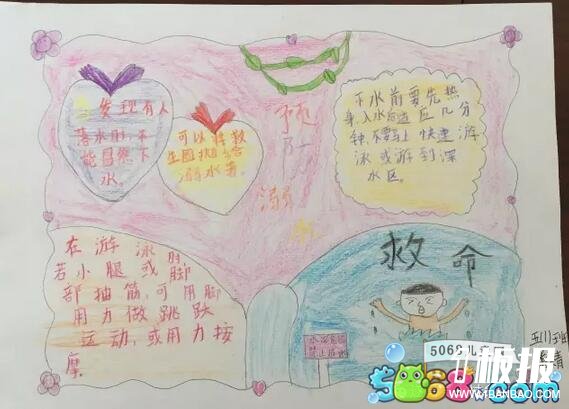 发现有人
落水时,不
能冒然下
水。
可以将救
生圈抛给
溺水者。
预
防
溺
水
下水前要先热
身,入水后适应几分
钟,不要马上快速游
泳或游到深
水区。
在游泳时
若小腿或脚
部抽筋,可用脚
用力做跳跃
运动,或用力按
摩
救命
水深危险
禁止游泳
5068儿童网
5068.com
板报
WWW.FBANBAO.COM